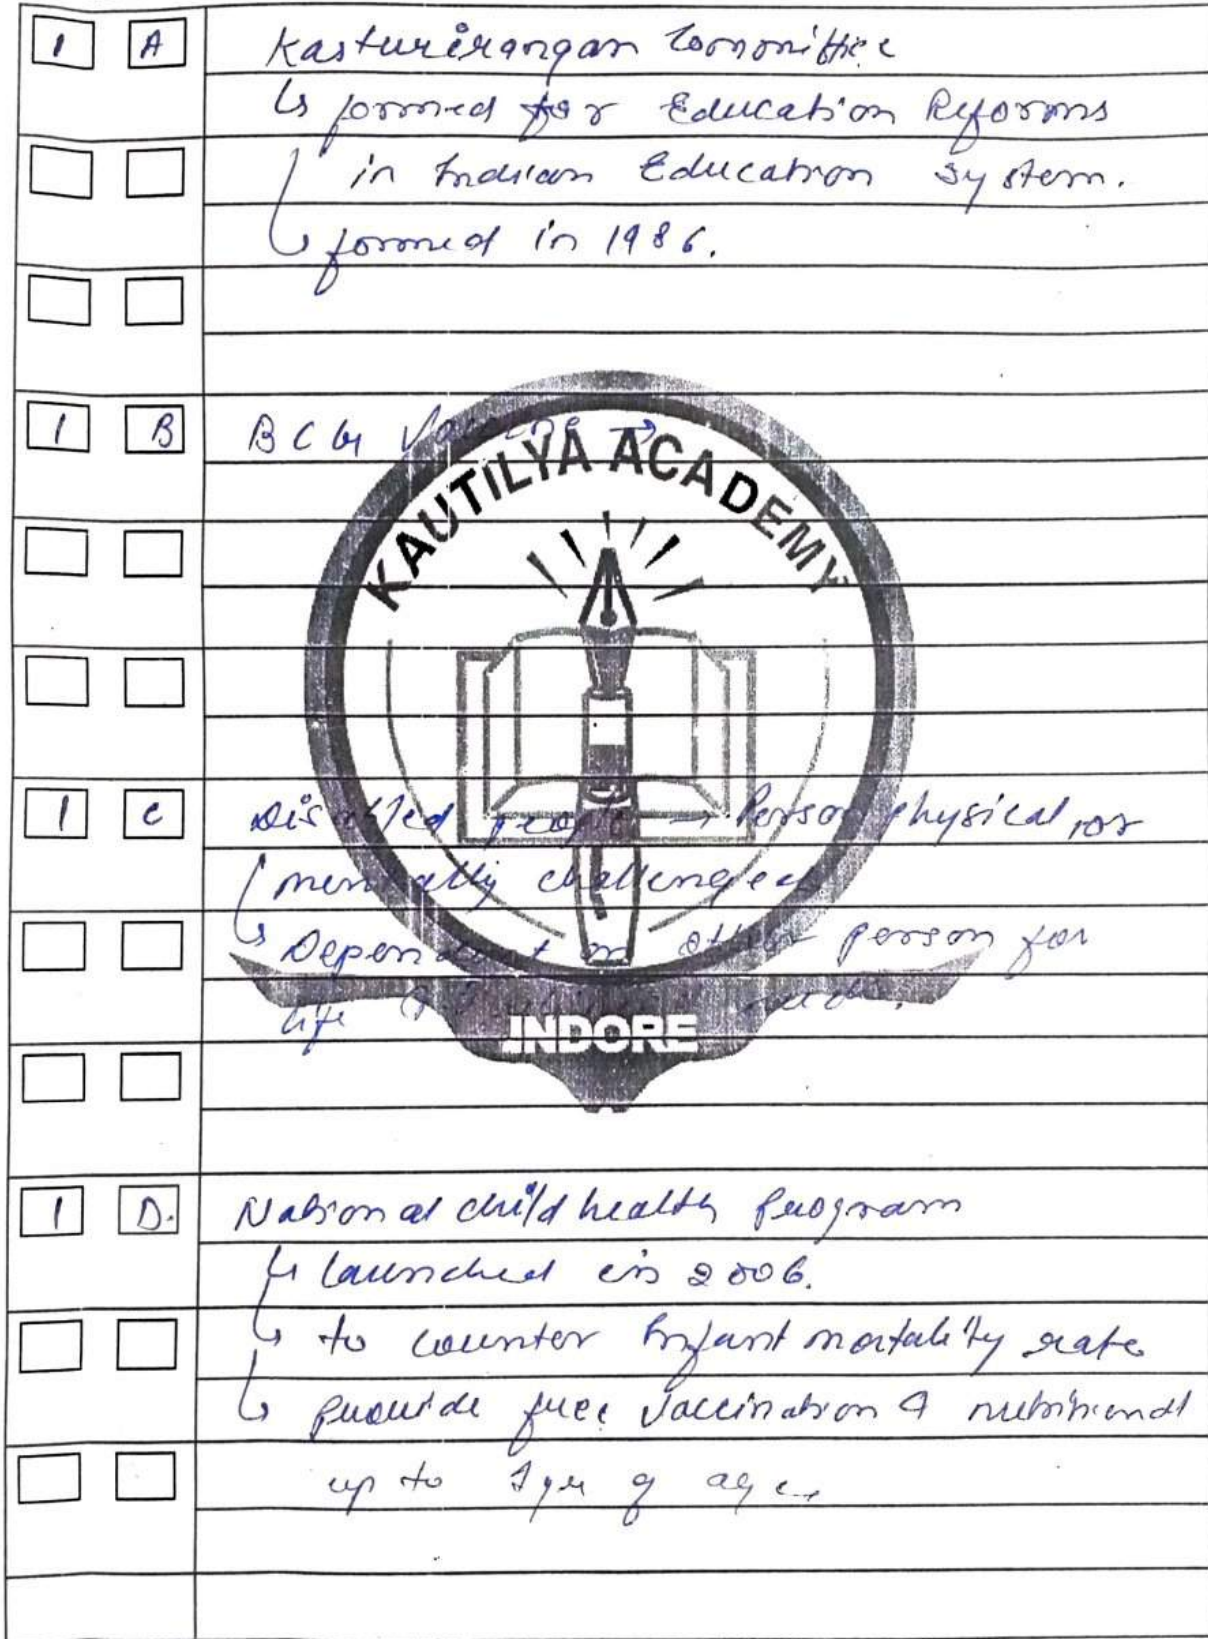 1 A Kasturirangan Committee
↳ formed for Education Reforms
in Indian Education System.
↳ formed in 1986.
1 B BCG Vaccine →
KAUTILYA ACADEMY
1 C Disabled people → Person physical or
mentally challenged
↳ Dependent on other person for
life needs.
INDORE
1 D. National child health Program
↳ launched in 2006.
↳ to counter Infant mortality rate
↳ provide free vaccination & nutritional
up to 1yr of age